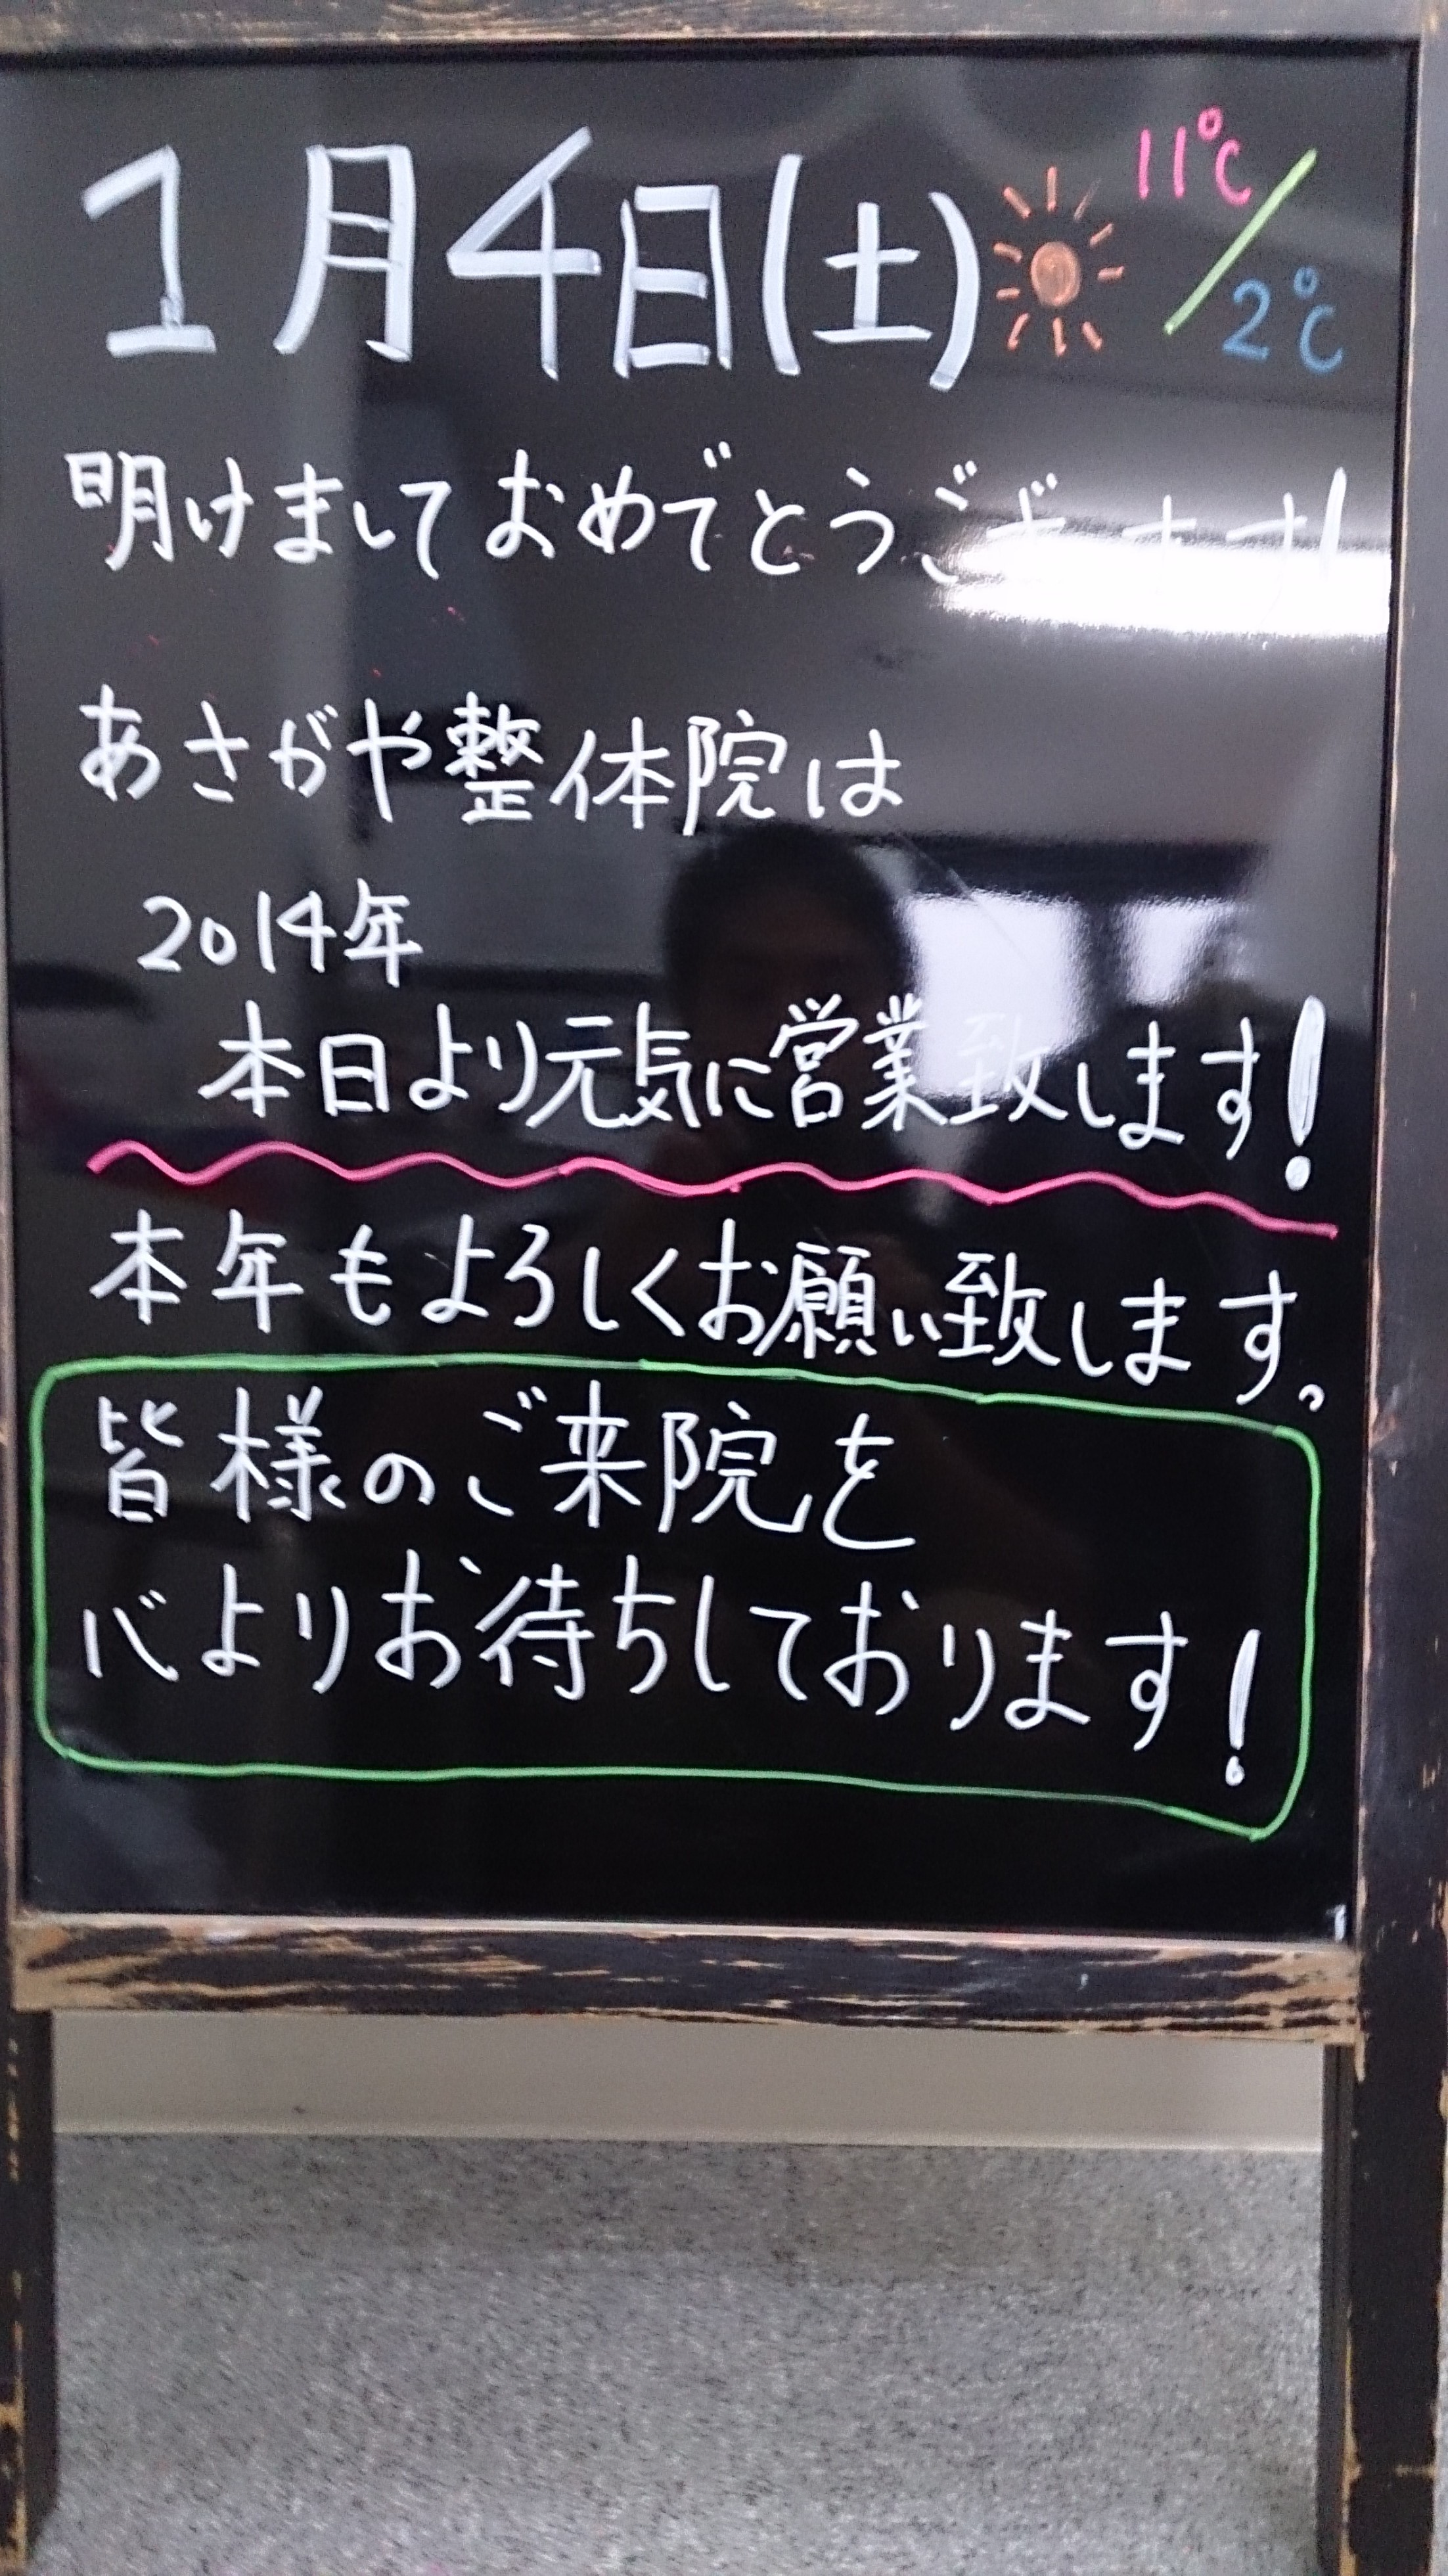 1月4日(土) 11℃/2℃
明けましておめでとうございます!
あさがや整体院は
2014年
本日より元気に営業致します!
本年もよろしくお願い致します。
皆様のご来院を
心よりお待ちしております!